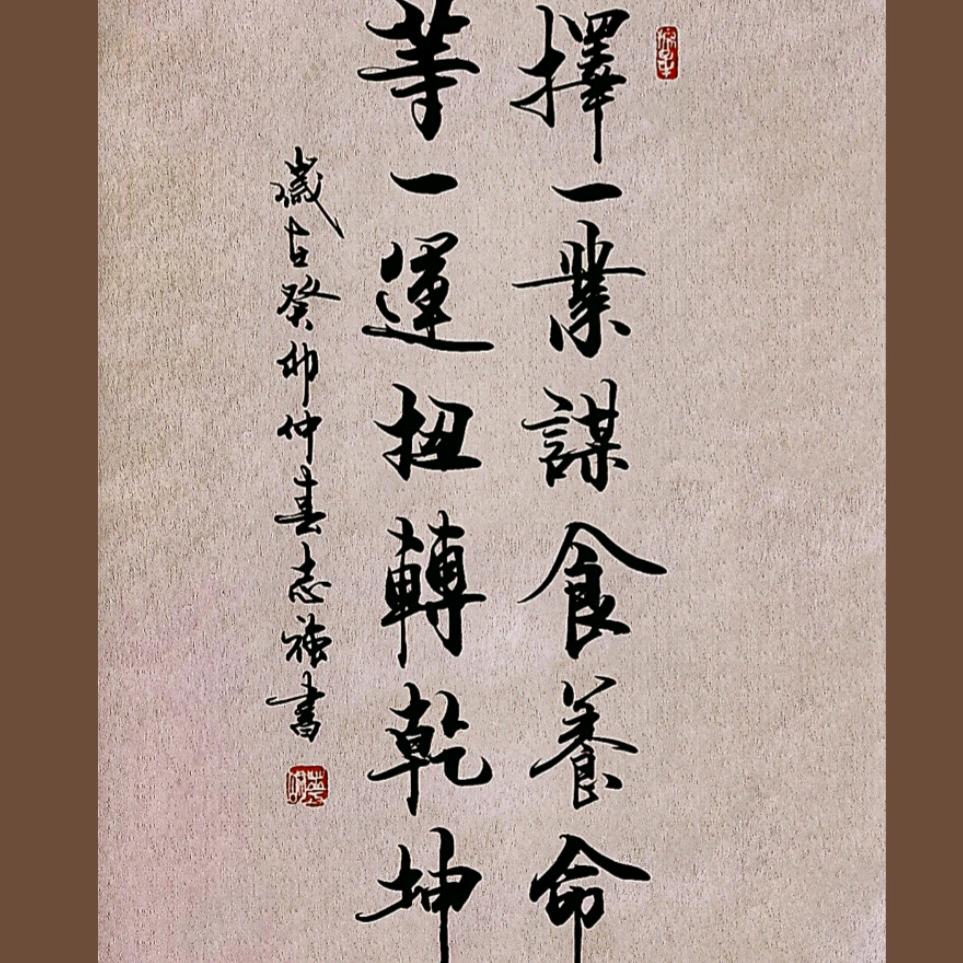 擇一業謀食養命
等一運扭轉乾坤
歲在癸卯仲春志強書